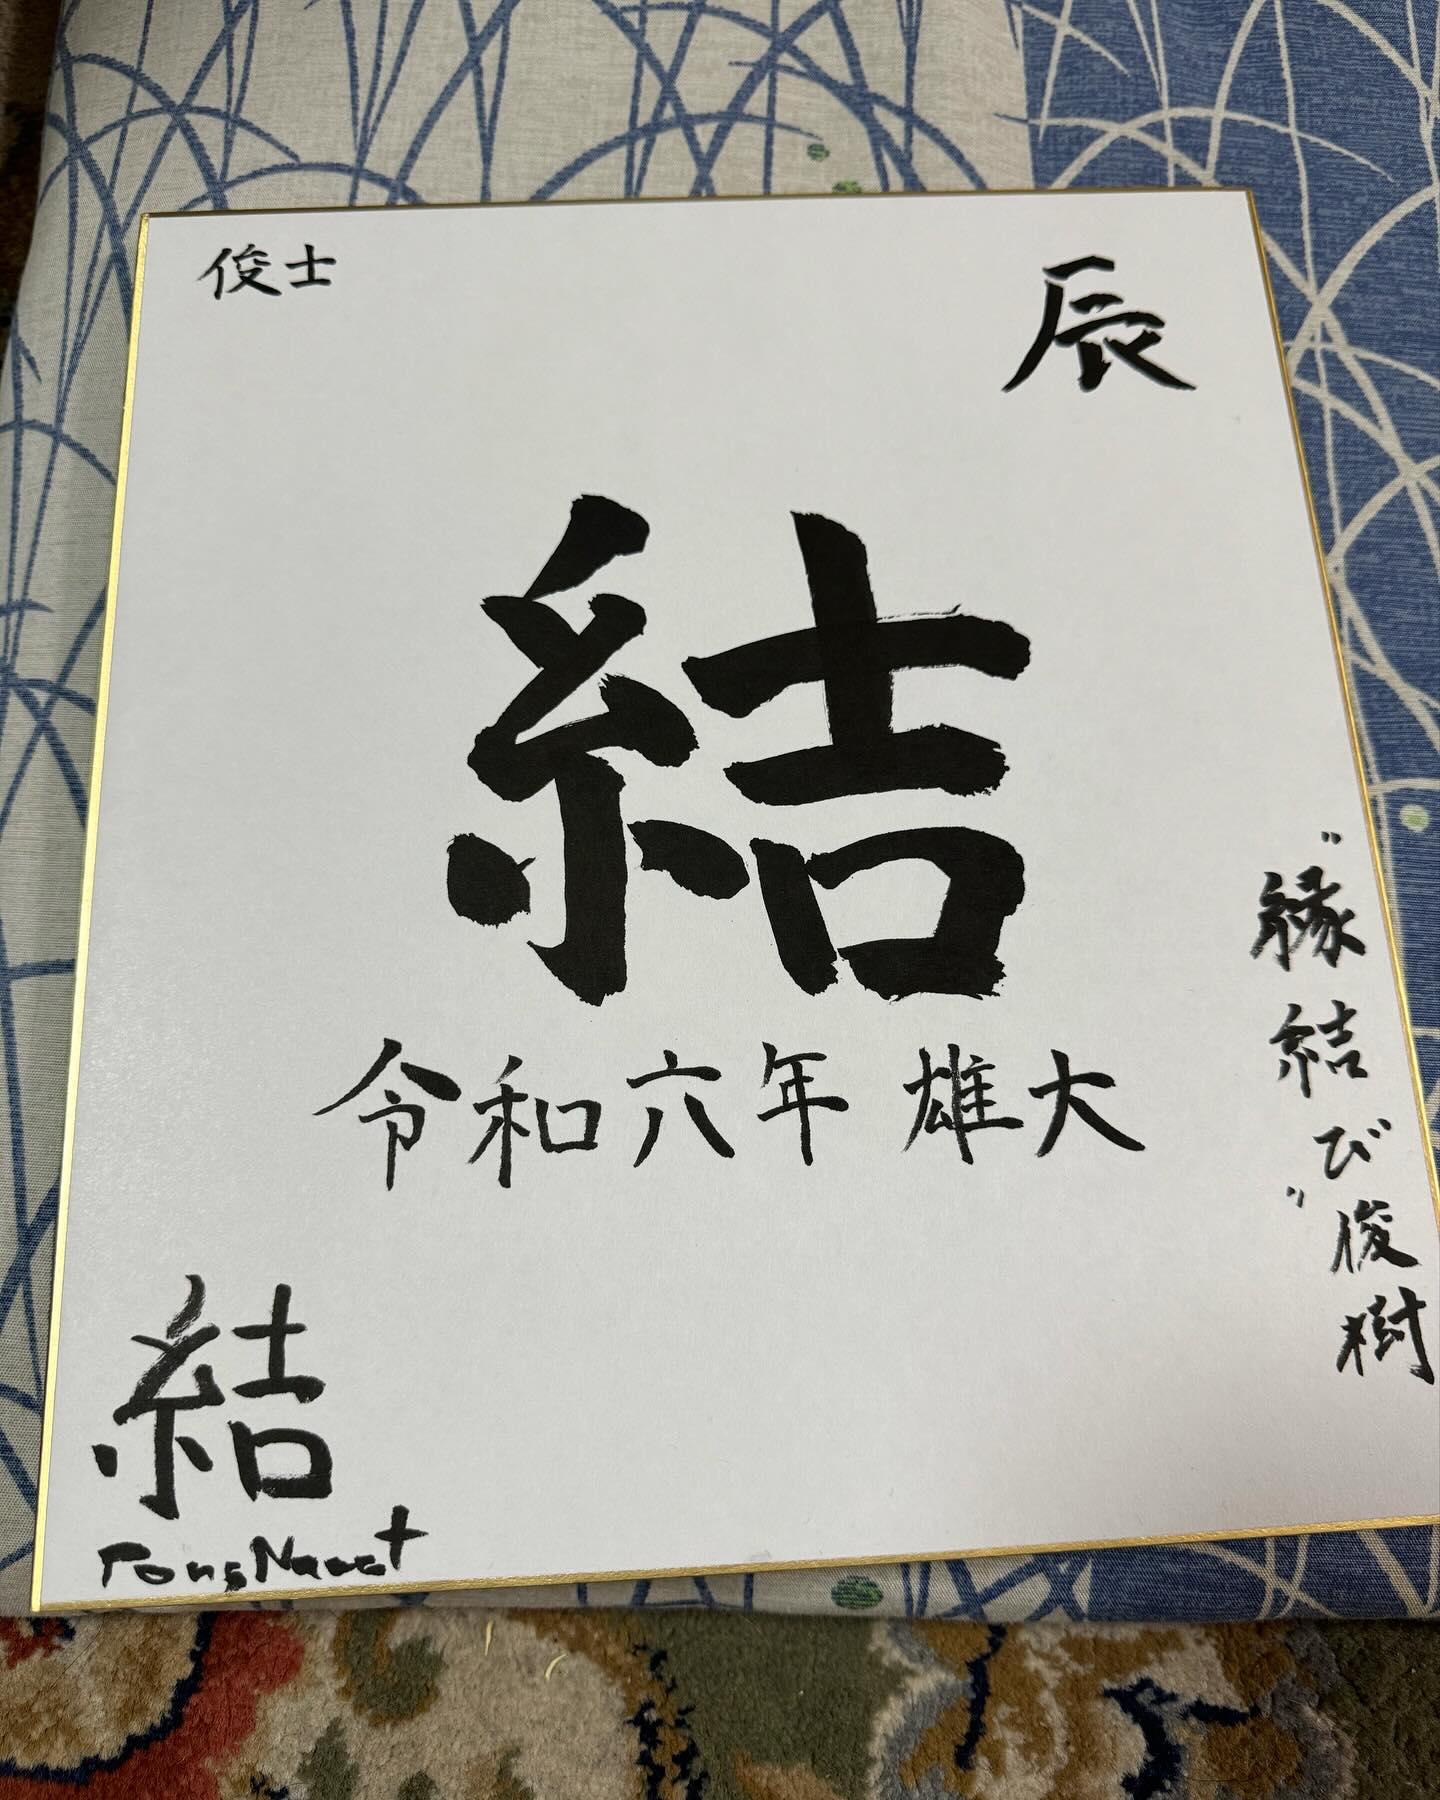 俊士
辰
結
令和六年 雄大
"縁結び" 俊樹
結
PongNawat